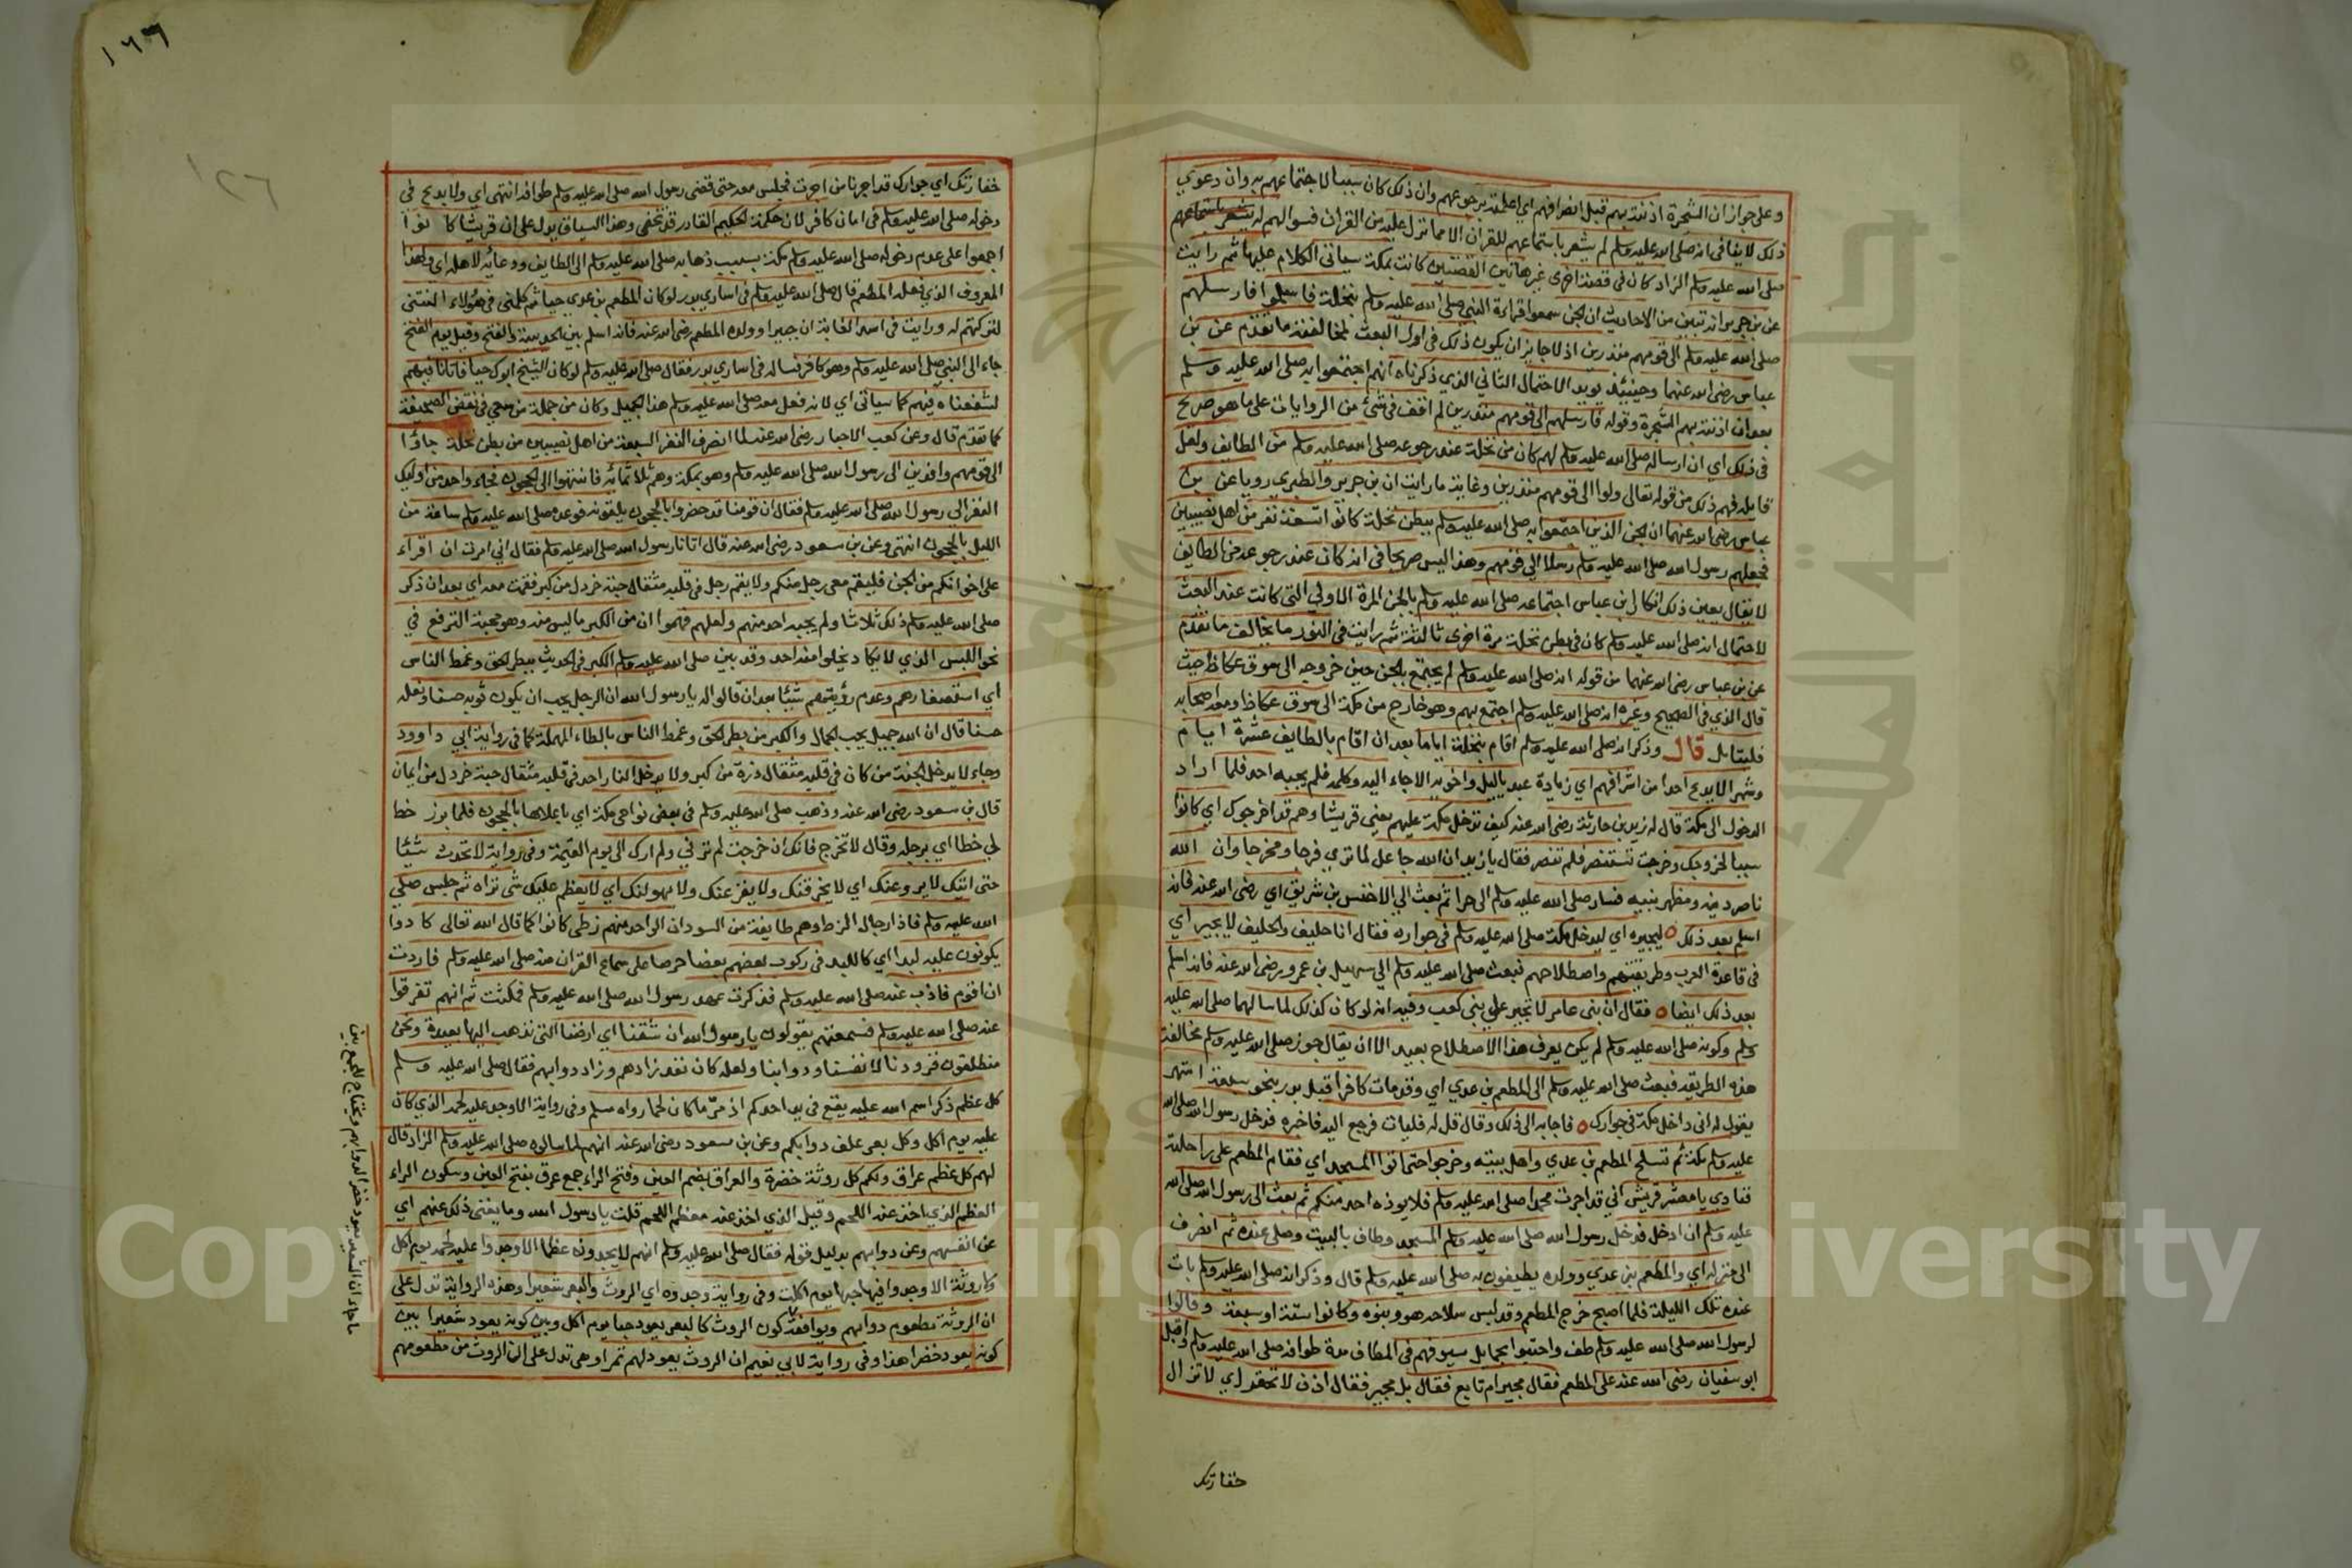 وعلى جواز ان الشجرة اذنته بهم قبل انصرافهم اي اعلمته برجوعهم وان ذلك كان سببا لاجتماعهم به وان دعوي
ذلك لا ينافي انه صلى الله عليه وسلم لم يشعر باستماعهم للقران الا مما نزل عليه من القران فسوالهم له
صلى الله عليه وسلم الزاد كان في قصة اخرى غير هاتين القصتين كانت بمكة سياتي الكلام عليها ثم رايت
عن بن جرير انه تبين من الاحاديث ان الجن سمعوا قراءة النبي صلى الله عليه وسلم بنخلة فاسلموا فارسلهم
صلى الله عليه وسلم الى قومهم منذرين اذ لا جايز ان يكون ذلك في اول البعث لمخالفته ما تقدم عن بن
عباس رضي الله عنهما وحينيئذ يويد الاحتمال الثاني الذي ذكرناه انهم اجتمعوا به صلى الله عليه وسلم
بعد ان اذنته بهم الشجرة وقوله فارسلهم الى قومهم منذرين لم اقف في شئ من الروايات على ما هو صريح
في ذلك اي ان ارساله صلى الله عليه وسلم لهم كان من نخلة عند رجوعه صلى الله عليه وسلم من الطايف ولعل
قايله فهم ذلك من قوله تعالى ولوا الى قومهم منذرين وغاية ما رايت ان بن جرير والطبري رويا عن بن
عباس رضي الله عنهما ان الجن الذين اجتمعوا به صلى الله عليه وسلم ببطن نخلة كانوا تسعة نفر من اهل نصيبين
فجعلهم رسول الله صلى الله عليه وسلم رسلا الى قومهم وهذا ليس صريحا في انه كان عند رجوعه من الطايف
لا يقال يعين ذلك انكار بن عباس اجتماعه صلى الله عليه وسلم بالجن المرة الاولي التي كانت عند البعث
لاحتمال انه صلى الله عليه وسلم كان في بطن نخلة مرة اخرى ثالثة ثم رايت في النور ما يخالف ما تقدم
عن بن عباس رضي الله عنهما من قوله انه صلى الله عليه وسلم لم يجتمع بالجن حين خروجه الى سوق عكاظ حيث
قال الذي في الصحيح وغيره انه صلى الله عليه وسلم اجتمع بهم وهو خارج من مكة الى سوق عكاظ ومعه اصحابه
فليتامل قال وذكر انه صلى الله عليه وسلم اقام بنخلة اياما بعد ان اقام بالطايف عشرة ايام
وشهرا لا يدع احدا من اشرافهم اي زيادة عبد ياليل واخويه الا جاء اليه وكلمه فلم يجبه احد فلما اراد
الدخول الى مكة قال له زيد بن حارثة رضي الله عنه كيف تدخل مكة عليهم يعني قريشا وهم قد اخرجوك اي كانوا
سببا لخروجك وخرجت تستنصر فلم تنصر فقال يا زيد ان الله جاعل لما تري فرجا ومخرجا وان الله
ناصر دينه ومظهر نبيه فسار صلى الله عليه وسلم الى حرا ثم بعث الي الاخنس بن شريق اي رضي الله عنه فانه
اسلم بعد ذلك ليجيره اي ليدخل مكة صلى الله عليه وسلم في جواره فقال انا حليف والحليف لا يجير اي
في قاعدة العرب وطريقتهم واصطلاحهم فبعث صلى الله عليه وسلم الي سهيل بن عمرو رضي الله عنه فانه اسلم
بعد ذلك ايضا فقال ان بني عامر لا تجير على بني كعب وفيه انه لو كان كذلك لما سالهما صلى الله عليه
وسلم وكونه صلى الله عليه وسلم لم يكن يعرف هذا الاصطلاح بعيد الا ان يقال جوز صلى الله عليه وسلم مخالفة
هذه الطريقه فبعث صلى الله عليه وسلم الى المطعم بن عدي اي وقد مات كافرا قبل بدر بنحو سبعة اشهر
يقول له اني داخل مكة في جوارك فاجابه الى ذلك وقال قل له فليات فرجع اليه فاخبره فدخل رسول الله صلى الله
عليه وسلم مكة ثم تسلح المطعم بن عدي واهل بيته وخرجوا حتى اتوا المسجد اي فقام المطعم على راحلته
فنادي يا معشر قريش اني قد اجرت محمدا صلى الله عليه وسلم فلا يوذه احد منكم ثم بعث الى رسول الله صلى الله
عليه وسلم ان ادخل فدخل رسول الله صلى الله عليه وسلم المسجد وطاف بالبيت وصلى عنده ثم انصرف
الى منزله اي والمطعم بن عدي وولده يطيفون به صلى الله عليه وسلم قال وذكر انه صلى الله عليه وسلم بات
عنده تلك الليلة فلما اصبح خرج المطعم وقد لبس سلاحه هو وبنوه وكانوا ستة او سبعة وقالوا
لرسول الله صلى الله عليه وسلم طف واحتبوا بحمايل سيوفهم في المطاف مدة طوافه صلى الله عليه وسلم واقبل
ابو سفيان رضي الله عنه على المطعم فقال مجير ام تابع فقال بل مجير فقال اذن لا تحقر اي لا تزال
خفارتك
١٦٦
١٢٦
خفارتك اي جوارك قد اجرنا من اجرت فجلس معه حتى قضى رسول الله صلى الله عليه وسلم طوافه انتهى اي ولا بدع في
دخوله صلى الله عليه وسلم في امان كافر لان حكمة الحكيم القادر قد تخفى وهذا السياق يدل على ان قريشا كانوا
اجمعوا على عدم دخوله صلى الله عليه وسلم مكة بسبب ذهابه صلى الله عليه وسلم الى الطايف ودعائه لاهله اي ولهذا
المعروف الذي فعله المطعم قال صلى الله عليه وسلم في اساري بدر لو كان المطعم بن عدي حيا ثم كلمني في هؤلاء النتنى
لتركتهم له ورايت في اسد الغابة ان جبيرا وولده المطعم رضي الله عنه فانه اسلم بين الحديبية والفتح وقيل يوم الفتح
جاء الى النبي صلى الله عليه وسلم وهو كافر فساله في اساري بدر فقال صلى الله عليه وسلم لو كان الشيخ ابوك حيا فاتانا فيهم
لشفعناه فيهم كما سياتي اي لانه فعل معه صلى الله عليه وسلم هذا الجميل وكان من جملة من سعي في نقض الصحيفة
كما تقدم قال وعن كعب الاحبار رضي الله عنه لما انصرف النفر السبعة من اهل نصيبين من بطن نخلة جاؤا
الى قومهم وافدين الى رسول الله صلى الله عليه وسلم وهو بمكة وهم ثلاثمائه فانتهوا الى الحجون فجاء واحد من اوليك
النفر الي رسول الله صلى الله عليه وسلم فقال ان قومنا قد حضروا بالحجون يلقونه فوعده صلى الله عليه وسلم ساعة من
الليل بالحجون انتهى وعن بن مسعود رضي الله عنه قال اتانا رسول الله صلى الله عليه وسلم فقال اني امرت ان اقراء
على اخوانكم من الجن فليقم معي رجل منكم ولا يقم رجل في قلبه مثقال حبة خردل من كبر فقمت معه اي بعد ان ذكر
صلى الله عليه وسلم ذلك ثلاثا ولم يجبه احد منهم ولعلهم فهموا ان من الكبر ما ليس منه وهو محبة الترفع في
نحو اللبس الذي لا يكاد يخلوا منه احد وقد بين صلى الله عليه وسلم الكبر في الحديث ببطر الحق وغمط الناس
اي استصغارهم وعدم رؤيتهم شيئا بعد ان قالوا له يا رسول الله ان الرجل يحب ان يكون ثوبه حسنا ونعله
حسنا قال ان الله جميل يحب الجمال والكبر من بطر الحق وغمط الناس بالطاء المهملة كما في رواية ابي داوود
وجاء لا يدخل الجنة من كان في قلبه مثقال ذرة من كبر ولا يدخل النار احد في قلبه مثقال حبة خردل من ايمان
قال بن مسعود رضي الله عنه وذهب صلى الله عليه وسلم في بعض نواحي مكة اي باعلاها بالحجون فلما برز خط
لي خطا اي برجله وقال لا تخرج فانك ان خرجت لم ترني ولم ارك الى يوم القيمة وفي رواية لا تحدث شيئا
حتى اتيك لا يروعنك اي لا يخرقنك ولا يفزعنك ولا يهولنك اي لا يعظم عليك شي تراه ثم جلس صلى
الله عليه وسلم فاذا رجال الزط وهم طايفة من السودان الواحد منهم زطي كانوا كما قال الله تعالى كادوا
يكونون عليه لبدا اي كاللبد في ركوب بعضهم بعضا حرصا على سماع القران منه صلى الله عليه وسلم فاردت
ان اقوم فاذب عنه صلى الله عليه وسلم فذكرت عهد رسول الله صلى الله عليه وسلم فمكثت ثم انهم تفرقوا
عنه صلى الله عليه وسلم فسمعتهم يقولون يا رسول الله ان شقتنا اي ارضنا التي نذهب اليها بعيدة ونحن
منطلقون فزودنا لانفسنا ودوابنا ولعله كان نفد زادهم وزاد دوابهم فقال صلى الله عليه وسلم
كل عظم ذكر اسم الله عليه يقع في يد احدكم اذ مرّ ما كان لحما رواه مسلم وفي رواية الا وجد عليه لحمه الذي كان
عليه يوم اكل وكل بعر علف دوابكم وعن بن مسعود رضي الله عنه انهم لما سالوه صلى الله عليه وسلم الزاد قال
لهم كل عظم عراق ولكم كل روثة خضرة والعراق بضم العين وفتح الراء جمع عرق بفتح العين وسكون الراء
العظم الذي اخذ عنه اللحم وقيل الذي اخذ عنه معظم اللحم قلت يا رسول الله وما يغني ذلك عنهم اي
عن انفسهم وعن دوابهم بدليل قوله فقال صلى الله عليه وسلم انهم لا يجدون عظما الا وجدوا عليه لحمه يوم اكل
ولا روثة الا وجدوا فيها حبها يوم اكلت وفي رواية وجدوه اي الروث والبعر شعيرا وهذه الرواية تدل على
ان الروثة مطعوم دوابهم ويوافقه كون الروث كالبعر يعود حبا يوم اكل وبين كونه يعود شعيرا بين
كونه يعود خضرا هذا وفي رواية لابي نعيم ان الروث يعود لهم تمرا وهي تدل على ان الروث من مطعومهم
ما جاء ان الشعير يعود خضرا لدوابهم ويحتاج للجمع بين
Copyright © King Saud University
جامعة الملك سعود